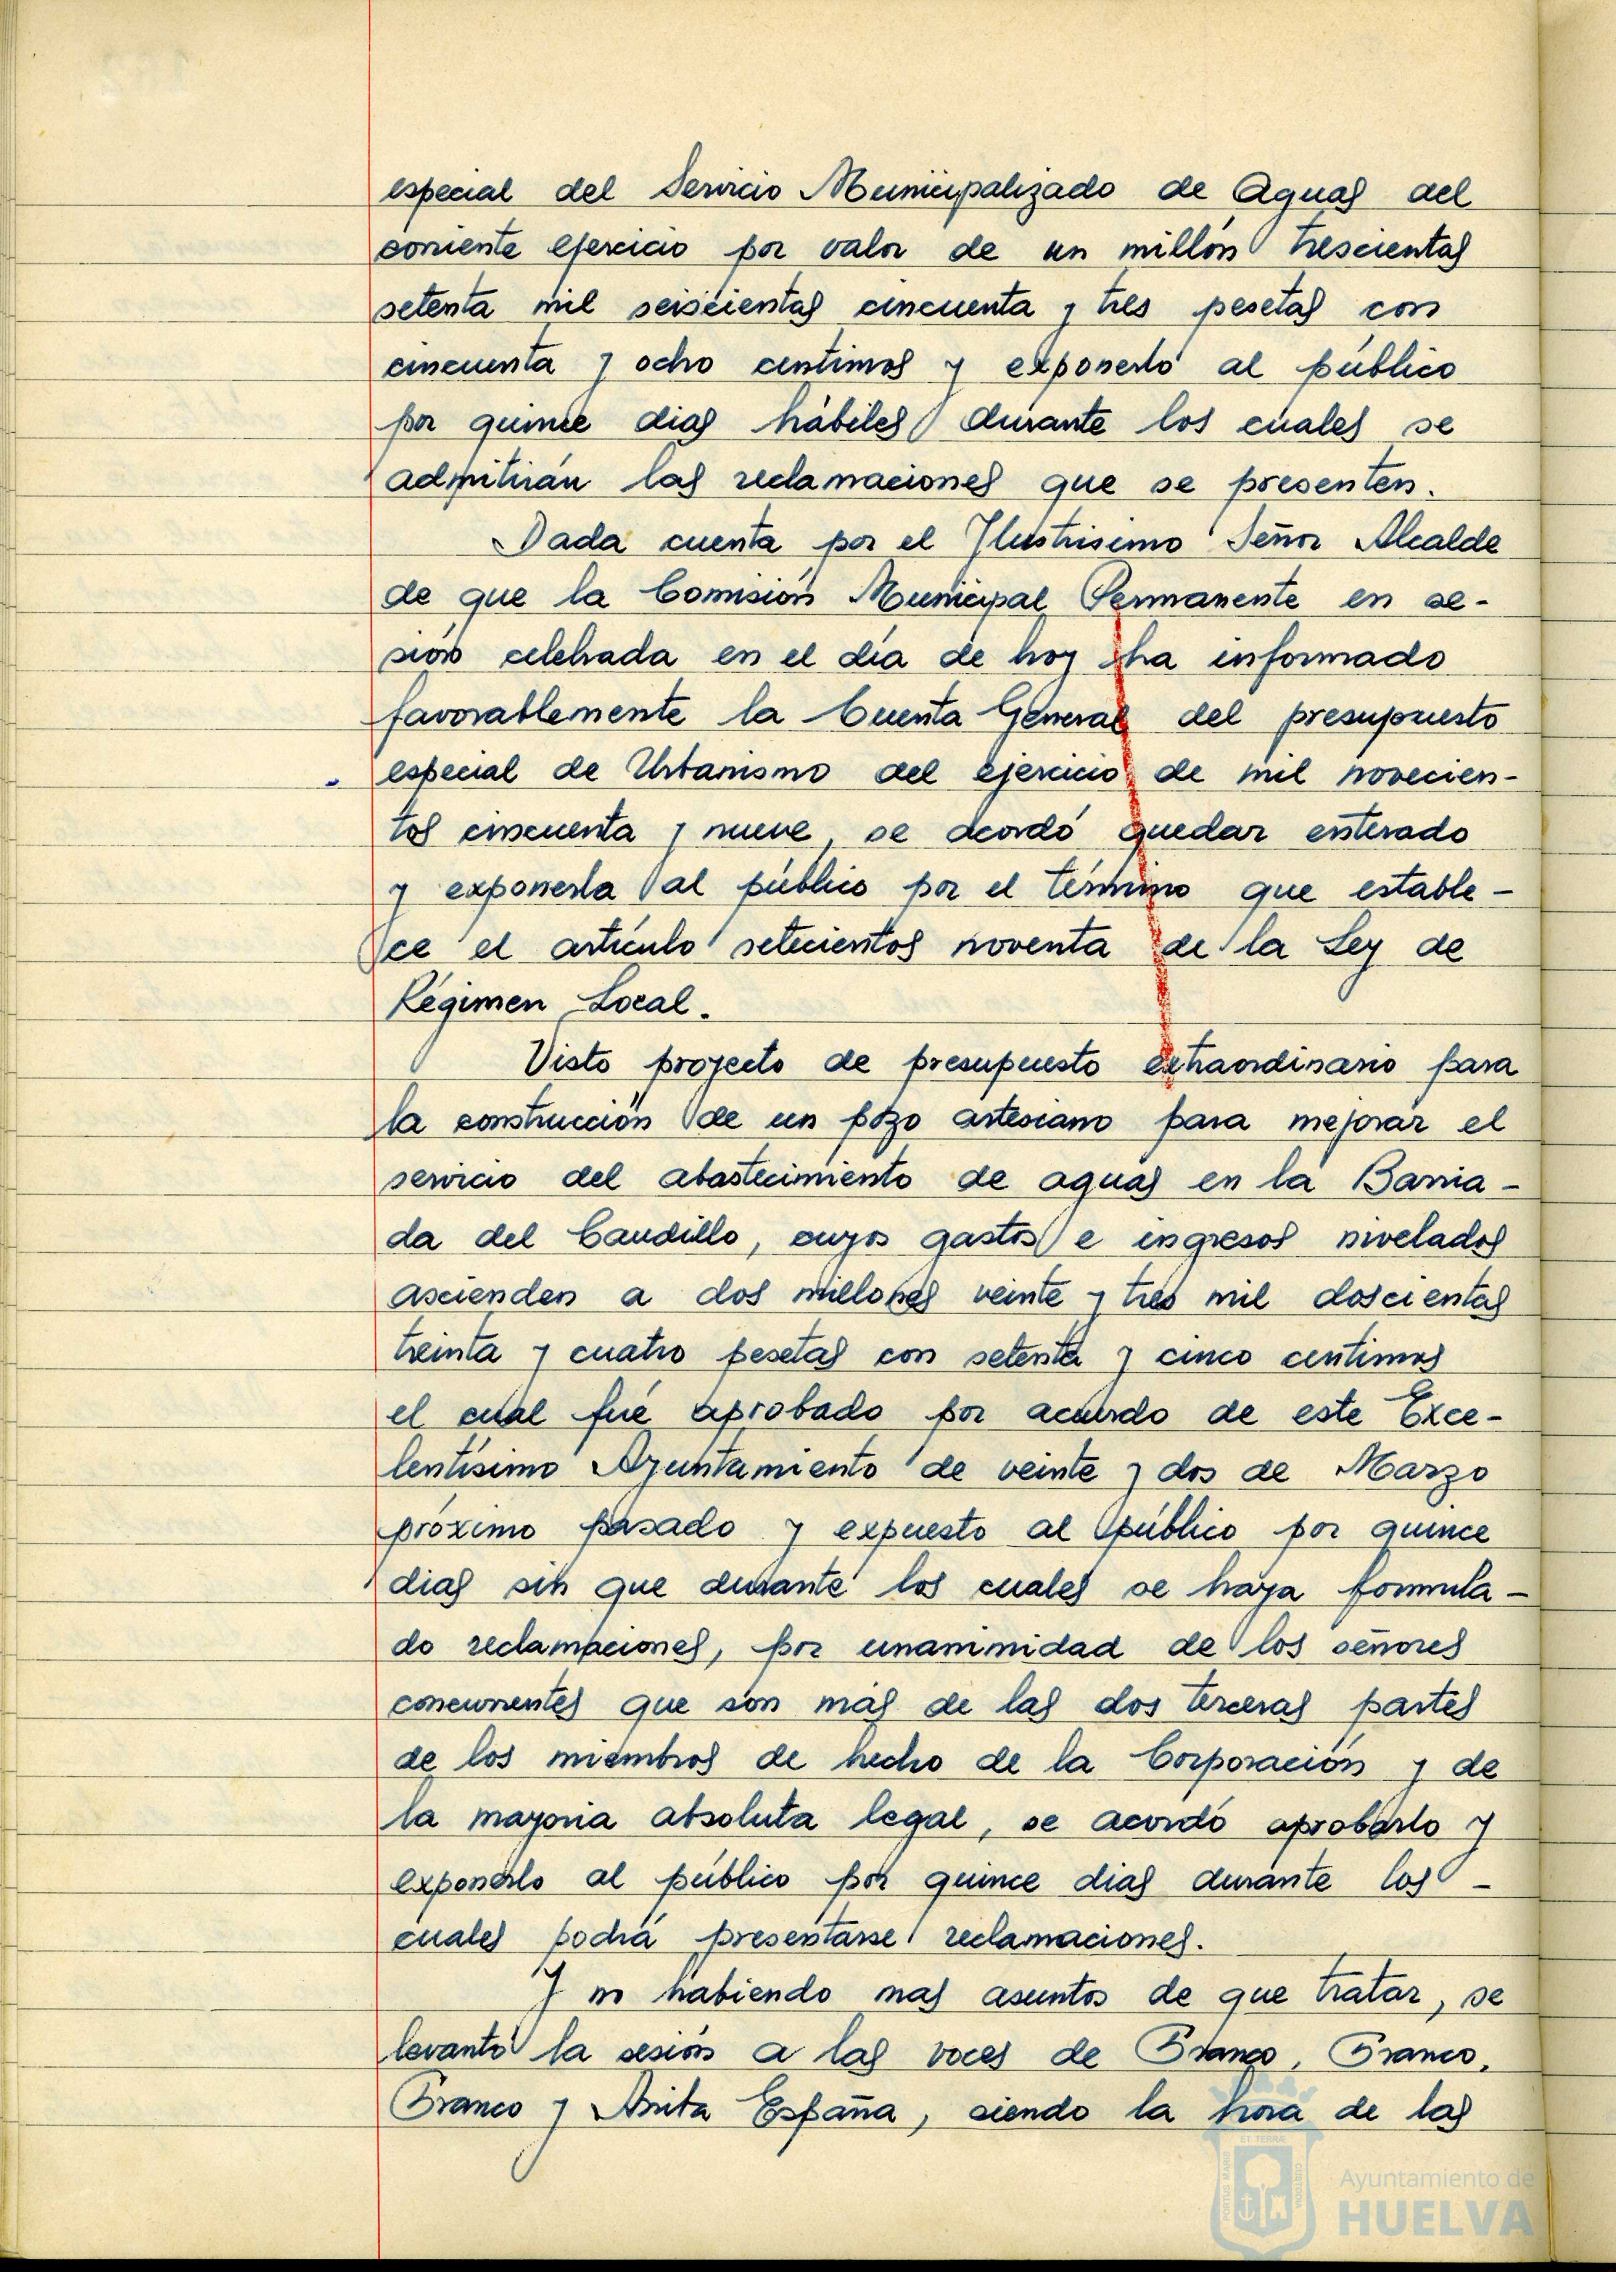 especial del Servicio Municipalizado de Aguas del
corriente ejercicio por valor de un millón trescientas
setenta mil seiscientas cincuenta y tres pesetas con
cincuenta y ocho centimos y exponerlo al público
por quince dias hábiles durante los cuales se
admitirán las reclamaciones que se presenten.
Dada cuenta por el Ilustrisimo Señor Alcalde
de que la Comisión Municipal Permanente en se-
sión celebrada en el día de hoy ha informado
favorablemente la Cuenta General del presupuesto
especial de Urbanismo del ejercicio de mil novecien-
tos cincuenta y nueve, se acordó quedar enterado
y exponerla al público por el término que estable-
ce el artículo setecientos noventa de la Ley de
Régimen Local.
Visto proyecto de presupuesto extraordinario para
la construcción de un pozo artesiano para mejorar el
servicio del abastecimiento de aguas en la Barria-
da del Caudillo, cuyos gastos e ingresos nivelados
ascienden a dos millones veinte y tres mil doscientas
treinta y cuatro pesetas con setenta y cinco centimos
el cual fué aprobado por acuerdo de este Exce-
lentísimo Ayuntamiento de veinte y dos de Marzo
próximo pasado y expuesto al público por quince
dias sin que durante los cuales se haya formula-
do reclamaciones, por unanimidad de los señores
concurrentes que son más de las dos terceras partes
de los miembros de hecho de la Corporación y de
la mayoria absoluta legal, se acordó aprobarlo y
exponerlo al público por quince dias durante los -
cuales podrá presentarse reclamaciones.
Y no habiendo mas asuntos de que tratar, se
levantó la sesión a las voces de Franco, Franco,
Franco y Arriba España, siendo la hora de las
PORTUS MARIS
ET TERRAE
CUSTODIA
Ayuntamiento de
HUELVA